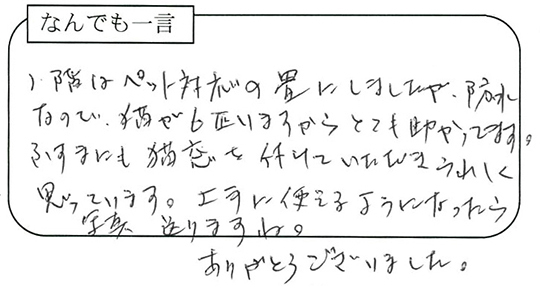 なんでも一言
1階はペット対応の畳にしましたが、防水
なので、猫が6匹いますからとても助かってます。
ふすまにも猫窓を付けていただきうれしく
思っています。上手に使えるようになったら
写真送りますね。
ありがとうございました。